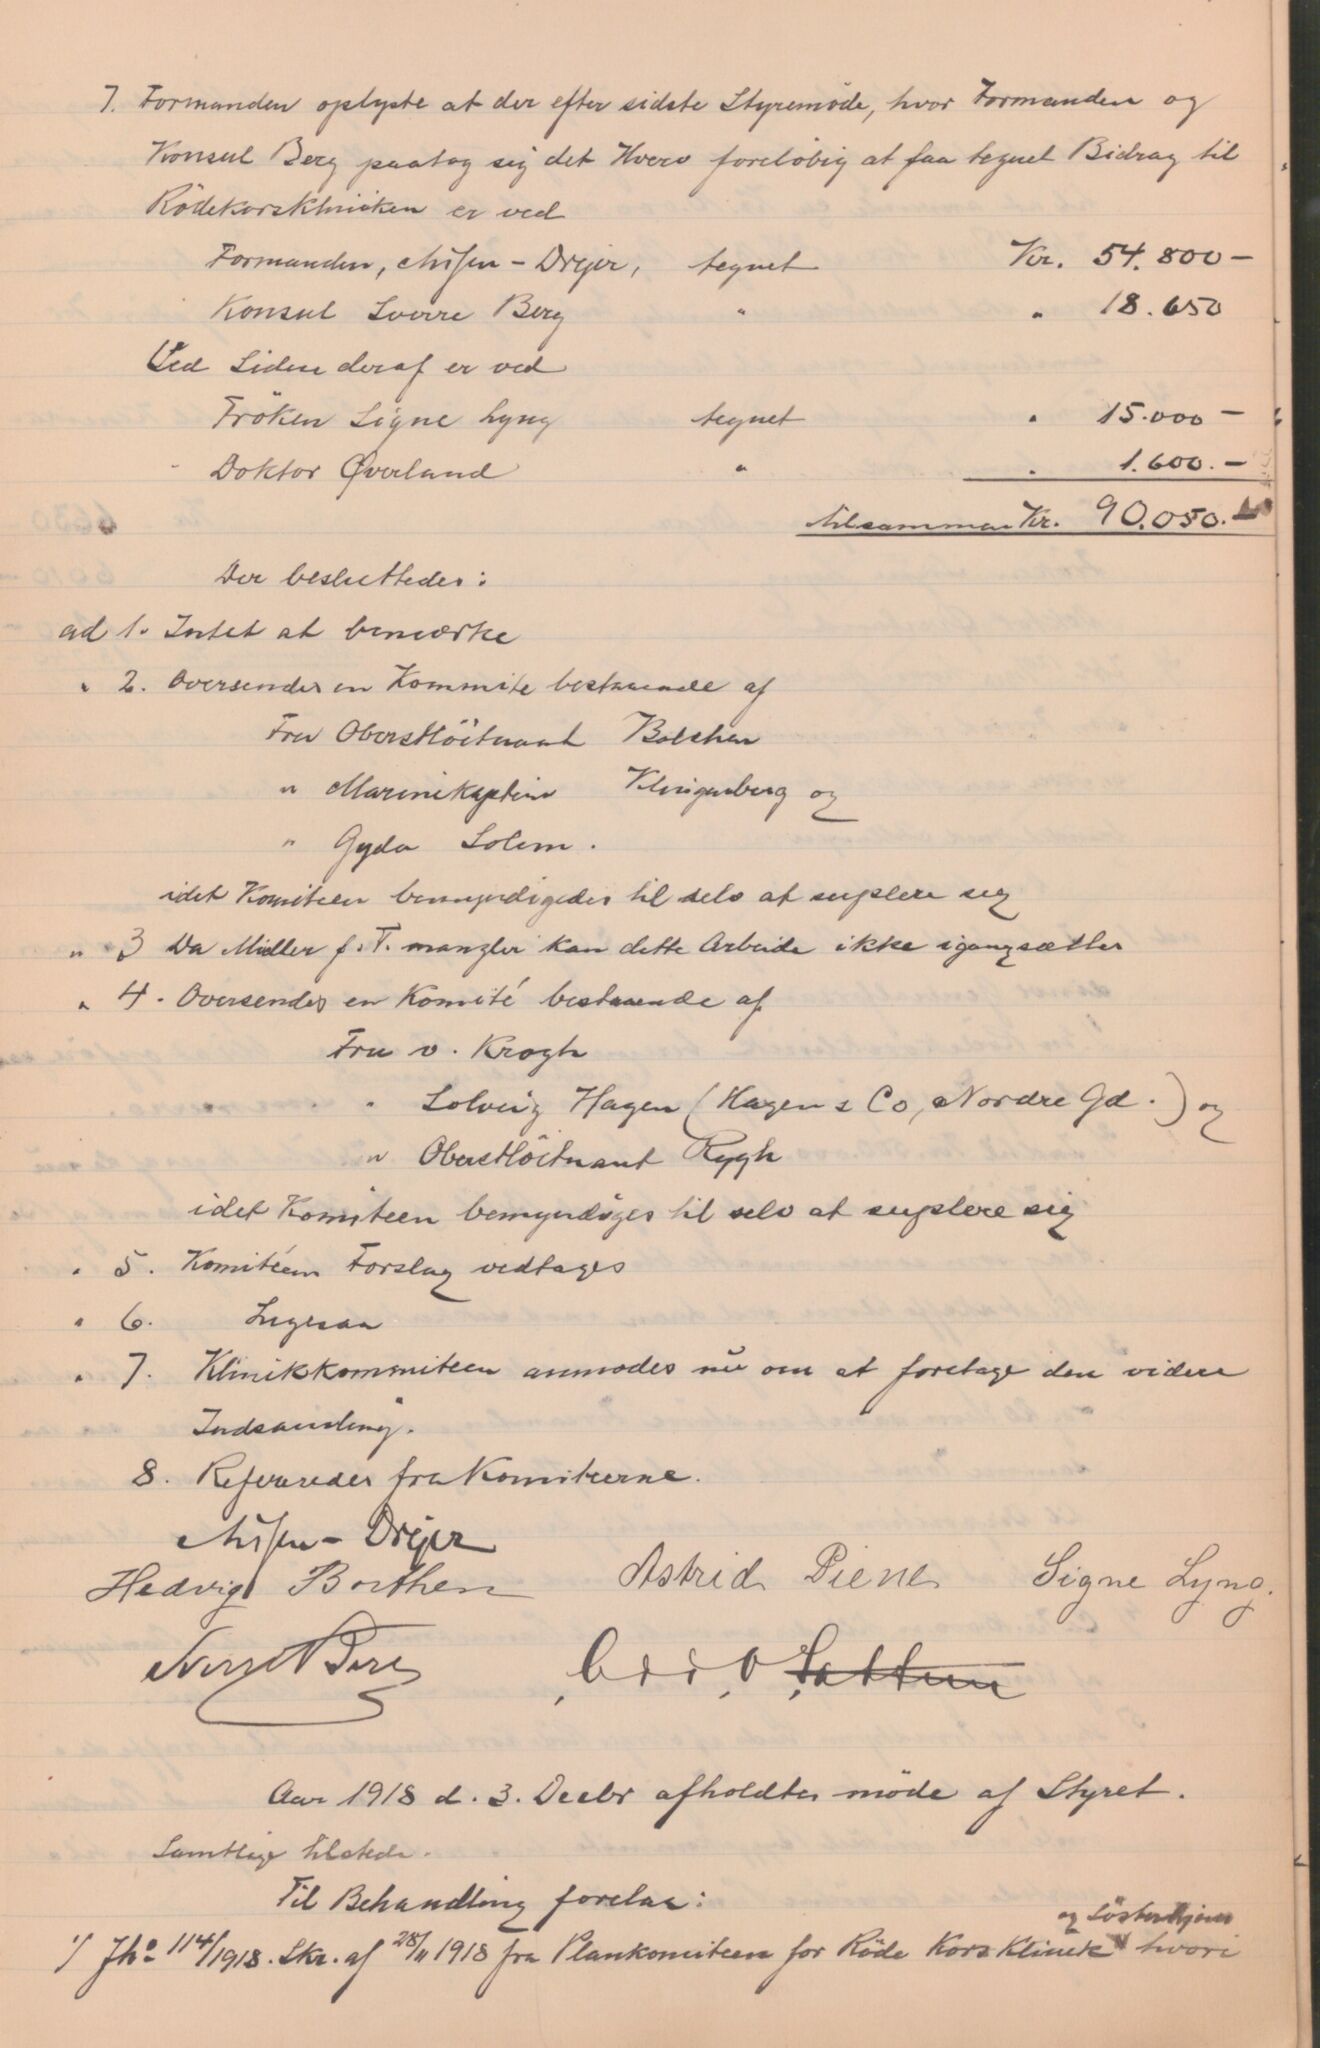 7. Formanden oplyste at der efter sidste Styremöde, hvor Formanden og
Konsul Berg paatog sig det Hverv forelöbig at faa tegnet Bidrag til
Rödekorskliniken er ved
Formanden, Nissen-Drejer, tegnet Kr. 54.800-
Konsul Sverre Berg " " 18.650
Ved Siden deraf er ved
Fröken Signe Lyng tegnet " 15.000-
Doktor Øverland " " 1.600.-
tilsammen Kr. 90.050.-
Der besluttedes:
ad 1. Intet at bemærke
" 2. Oversendes en Kommite bestaaende af
Fru Oberstlöitnant Bolschen
" Marinekaptein Klingenberg og
" Gyda Solem.
idet Komiteen bemyndigedes til selv at suplere sig
" 3 Da Midler f.T. mangler kan dette Arbeide ikke igangsættes
" 4. Oversendes en Komité bestaaende af
Fru v. Krogh
" Solveig Hagen (Hagen & Co, Nordre Gd.) og
" Oberstlöitnant Rygh
idet Komiteen bemyndiges til selv at suplere sig
" 5. Komitéens Forslag vedtages
" 6. Ligesaa
" 7. Klinikkommiteen anmodes nu om at foretage den videre
Indsamling.
8. Refereredes fra Komiteerne.
Nissen-Drejer
Hedvig Borthen Astrid Piene Signe Lyng.
Sverre Berg
Aar 1918 d. 3. Decbr afholdtes möde af Styret.
Samtlige tilstede.
Til Behandling forelaa:
og Sösterhjem
1/ Jno 114/1918. Skr. af 28/11 1918 fra Plankomiteen for Röde Kors Klinik hvori